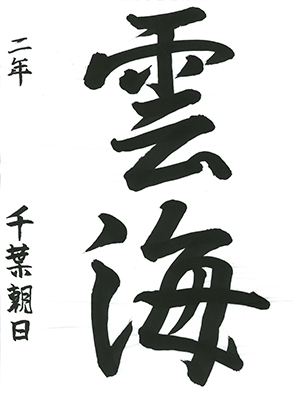 雲海
二年 千葉朝日